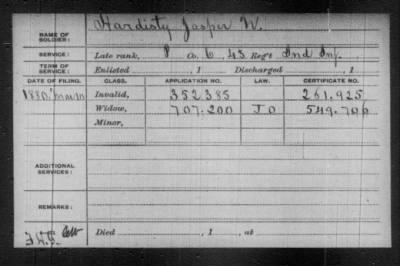 NAME OF SOLDIER: Hardisty Jasper W.
SERVICE: Late rank, P Co. G, 43 Reg't Ind Inf.
TERM OF SERVICE: Enlisted , 1 Discharged , 1
DATE OF FILING. CLASS. APPLICATION NO. LAW. CERTIFICATE NO.
1880. Invalid, 352385 261.925
Widow, 707.200 J O 549.706
Minor,
ADDITIONAL SERVICES:
REMARKS:
Died , 1 , at